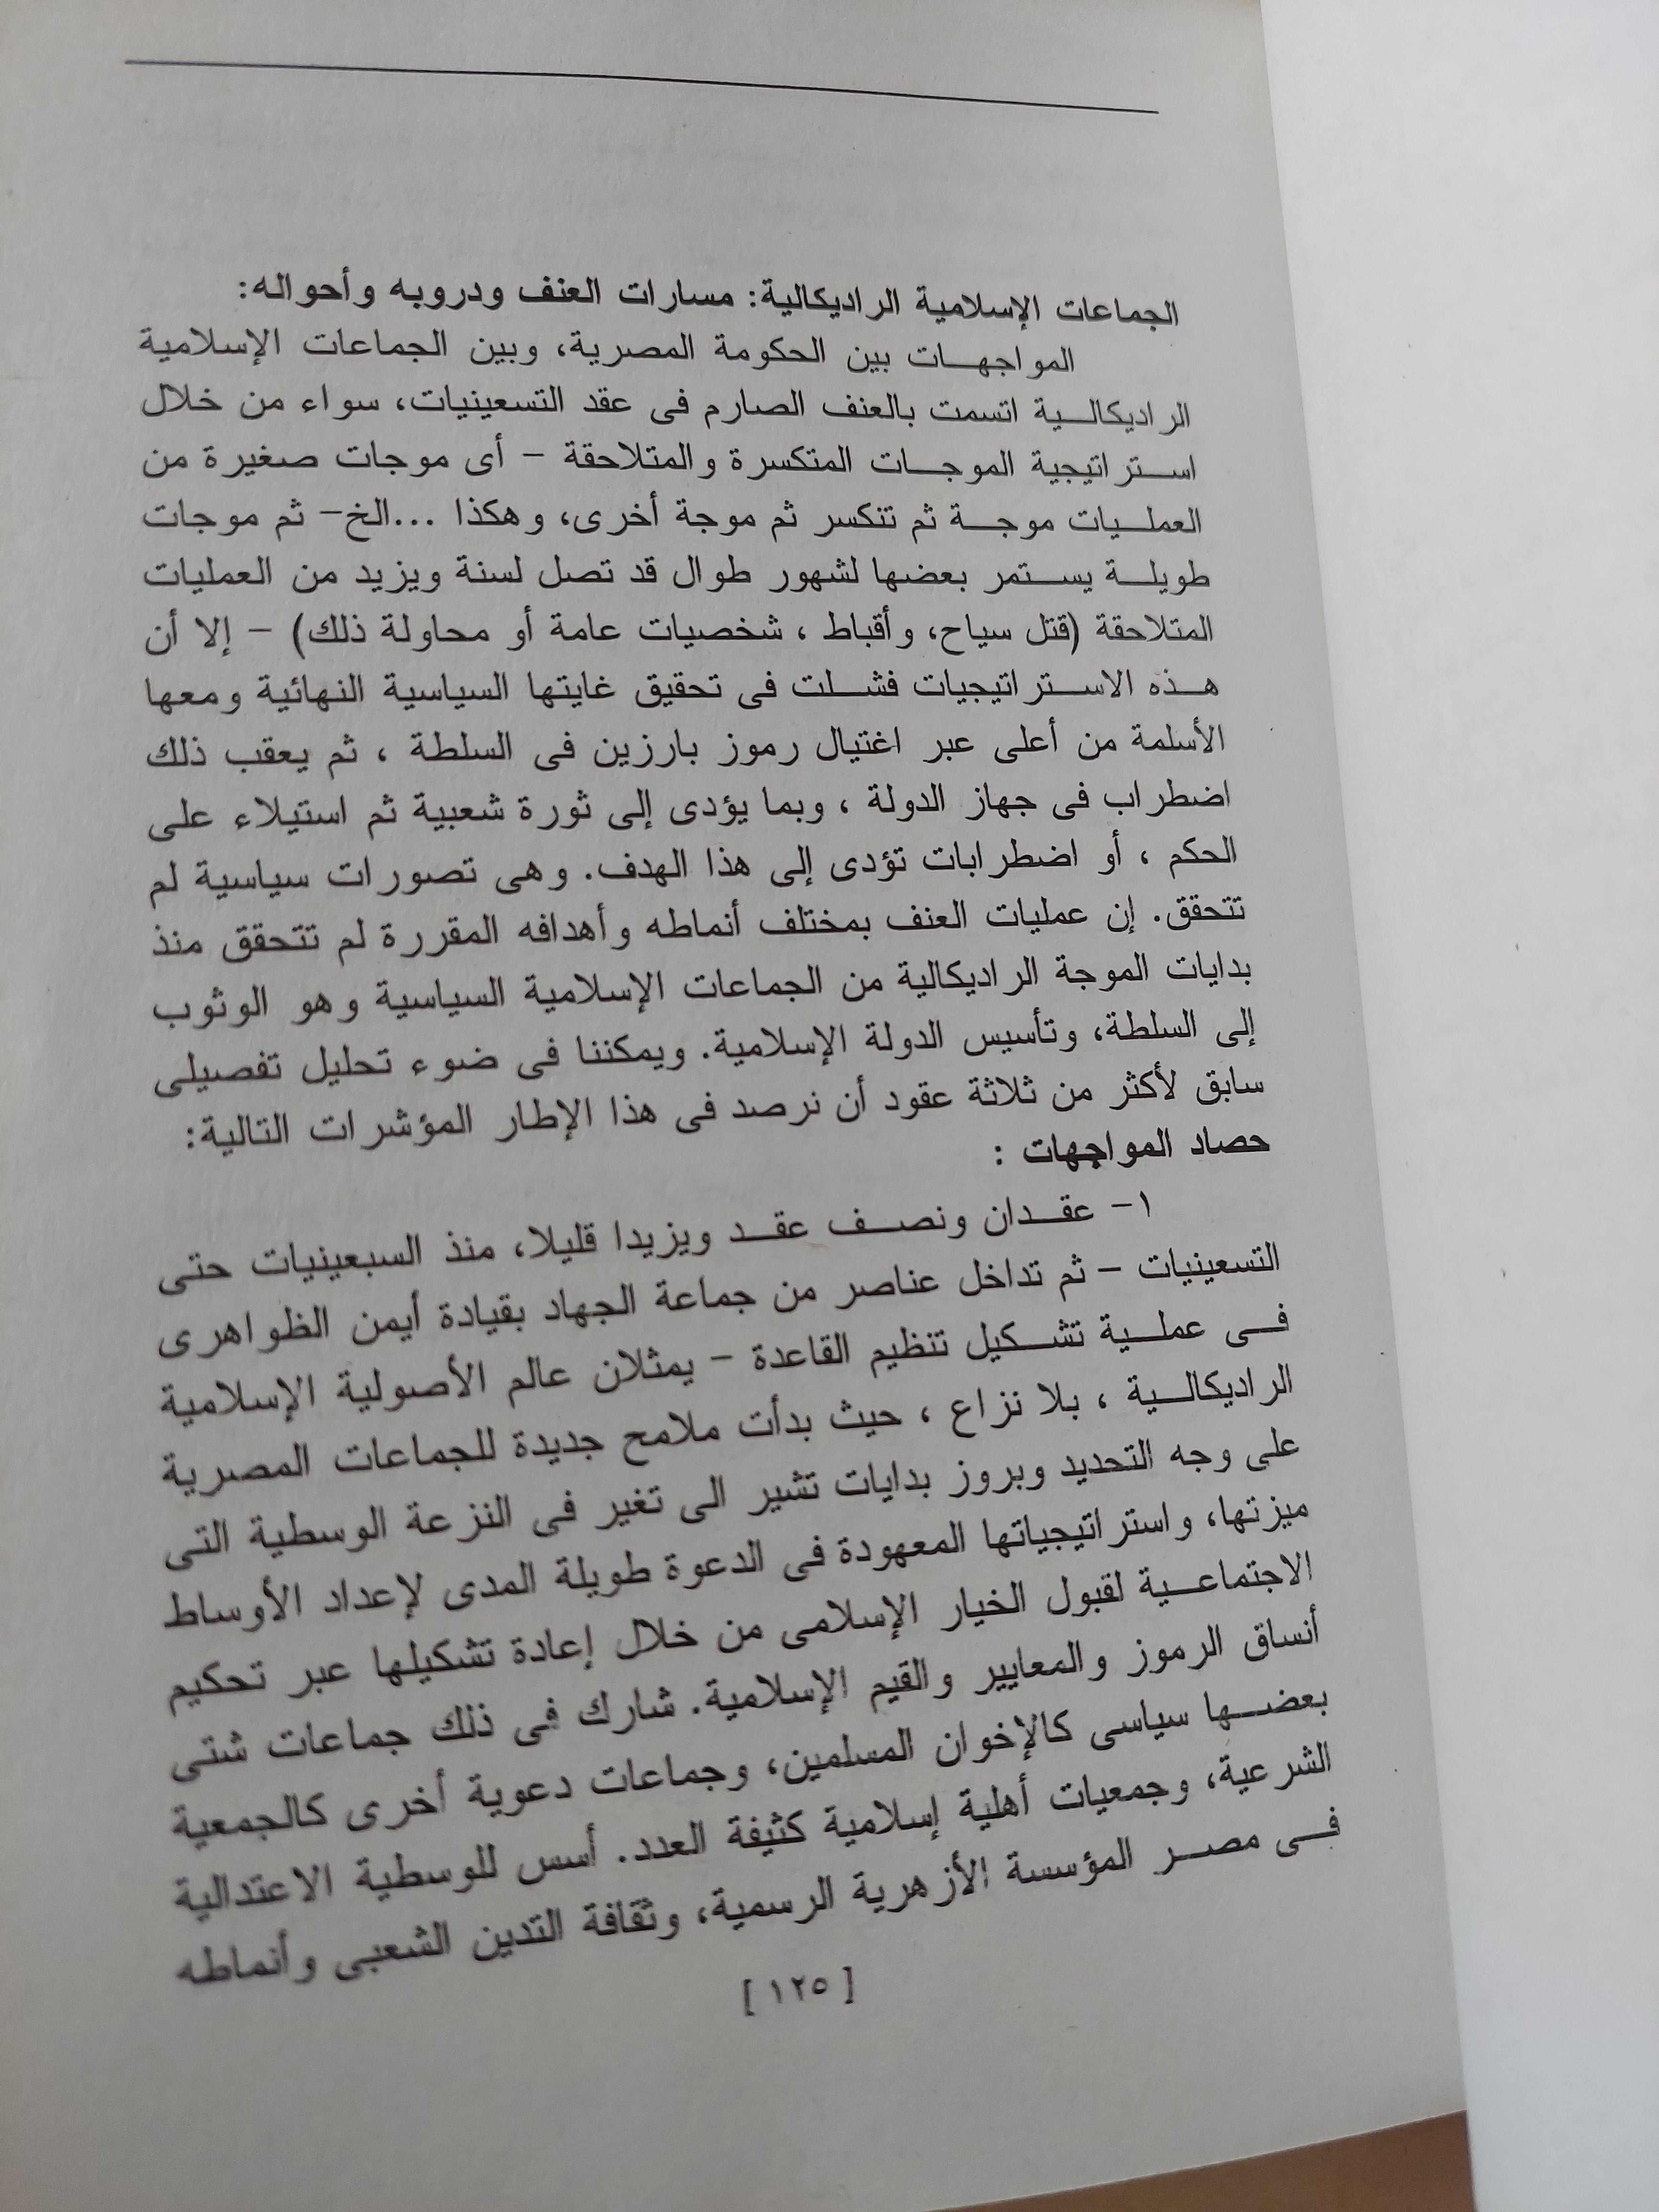 الجماعات الإسلامية الراديكالية: مسارات العنف ودروبه وأحواله:
المواجهات بين الحكومة المصرية، وبين الجماعات الإسلامية
الراديكالية اتسمت بالعنف الصارم فى عقد التسعينيات، سواء من خلال
استراتيجية الموجات المتكسرة والمتلاحقة – أى موجات صغيرة من
العمليات موجة ثم تتكسر ثم موجة أخرى، وهكذا ...الخ– ثم موجات
طويلة يستمر بعضها لشهور طوال قد تصل لسنة ويزيد من العمليات
المتلاحقة (قتل سياح، وأقباط ، شخصيات عامة أو محاولة ذلك) – إلا أن
هذه الاستراتيجيات فشلت فى تحقيق غايتها السياسية النهائية ومعها
الأسلمة من أعلى عبر اغتيال رموز بارزين فى السلطة ، ثم يعقب ذلك
اضطراب فى جهاز الدولة ، وبما يؤدى إلى ثورة شعبية ثم استيلاء على
الحكم ، أو اضطرابات تؤدى إلى هذا الهدف. وهى تصورات سياسية لم
تتحقق. إن عمليات العنف بمختلف أنماطه وأهدافه المقررة لم تتحقق منذ
بدايات الموجة الراديكالية من الجماعات الإسلامية السياسية وهو الوثوب
إلى السلطة، وتأسيس الدولة الإسلامية. ويمكننا فى ضوء تحليل تفصيلى
سابق لأكثر من ثلاثة عقود أن نرصد فى هذا الإطار المؤشرات التالية:
حصاد المواجهات :
١– عقدان ونصف عقد ويزيدا قليلا، منذ السبعينيات حتى
التسعينيات – ثم تداخل عناصر من جماعة الجهاد بقيادة أيمن الظواهرى
فى عملية تشكيل تنظيم القاعدة – يمثلان عالم الأصولية الإسلامية
الراديكالية ، بلا نزاع ، حيث بدأت ملامح جديدة للجماعات المصرية
على وجه التحديد وبروز بدايات تشير الى تغير فى النزعة الوسطية التى
ميزتها، واستراتيجياتها المعهودة فى الدعوة طويلة المدى لإعداد الأوساط
الاجتماعية لقبول الخيار الإسلامى من خلال إعادة تشكيلها عبر تحكيم
أنساق الرموز والمعايير والقيم الإسلامية. شارك فى ذلك جماعات شتى
بعضها سياسى كالإخوان المسلمين، وجماعات دعوية أخرى كالجمعية
الشرعية، وجمعيات أهلية إسلامية كثيفة العدد. أسس للوسطية الاعتدالية
فى مصر المؤسسة الأزهرية الرسمية، وثقافة التدين الشعبى وأنماطه
[ ١٢٥ ]